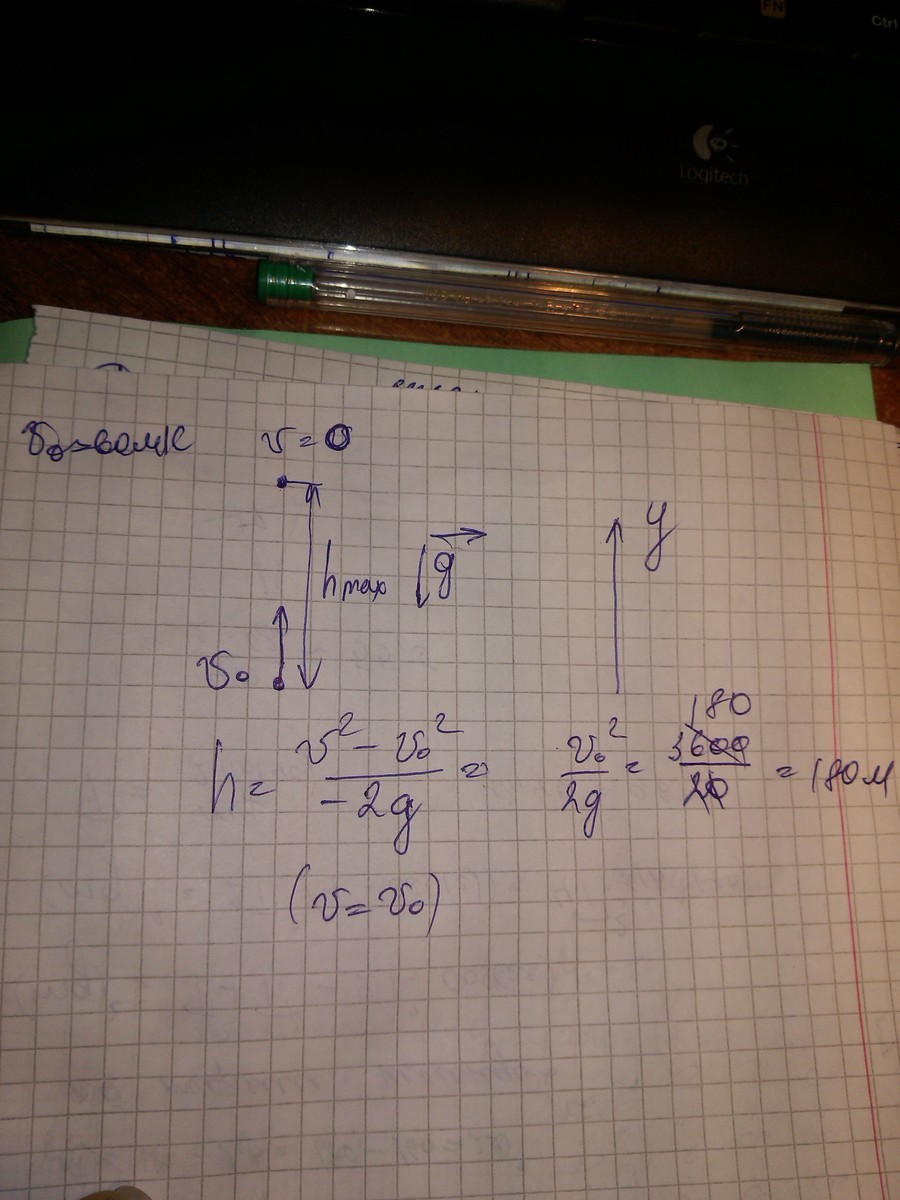 FN
Ctrl
Logitech
v = 0
h max g y
v₀
h = (v² - v₀²)/(-2g) = v₀²/(2g) = 3600/20 = 180 м
180
(v = v₀)